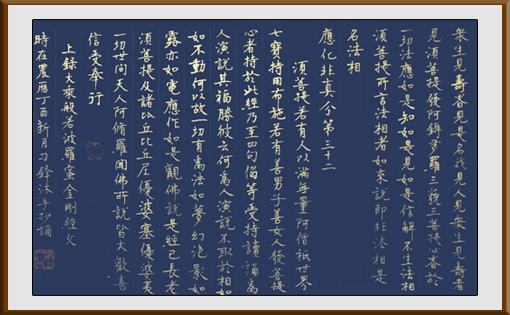 眾生見壽者見是名我見人見眾生見壽者
見須菩提發阿耨多羅三藐三菩提心者於
一切法應如是知如是見如是信解不生法相
須菩提所言法相者如來說即非法相是
名法相
應化非真分第三十二
須菩提若有人以滿無量阿僧祇世界
七寶持用布施若有善男子善女人發菩提
心者持於此經乃至四句偈等受持讀誦為
人演說其福勝彼云何為人演說不取於相如
如不動何以故一切有為法如夢幻泡影如
露亦如電應作如是觀佛說是經已長老
須菩提及諸比丘比丘尼優婆塞優婆夷
一切世間天人阿脩羅聞佛所說皆大歡喜
信受奉行
上録大乘般若波羅蜜金剛經文
時在農曆丁酉新月刁鋒沐手抄誦